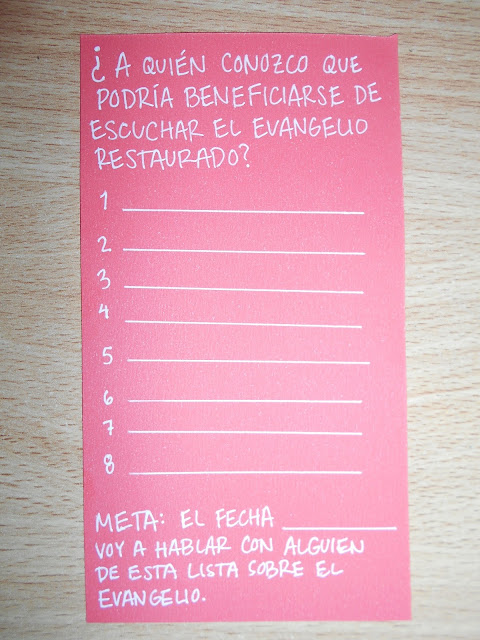 ¿A QUIÉN CONOZCO QUE
PODRÍA BENEFICIARSE DE
ESCUCHAR EL EVANGELIO
RESTAURADO?
1
2
3
4
5
6
7
8
META: EL FECHA
VOY A HABLAR CON ALGUIEN
DE ESTA LISTA SOBRE EL
EVANGELIO.